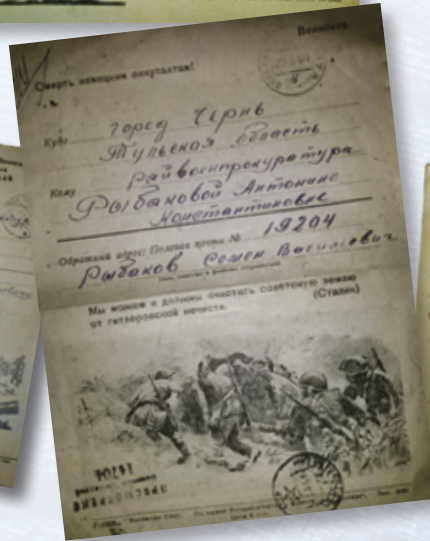 Воинское
Смерть немецким оккупантам!
Куда город Чернь
Тульская область
Райвоенпрокуратура
Кому Рыбаковой Антонине
Константиновне
Обратный адрес: Полевая почта № 19204
Рыбаков Семен Васильевич
Мы можем и должны очистить советскую землю
от гитлеровской нечисти. (Сталин)
ПРОСМОТРЕНО
14704